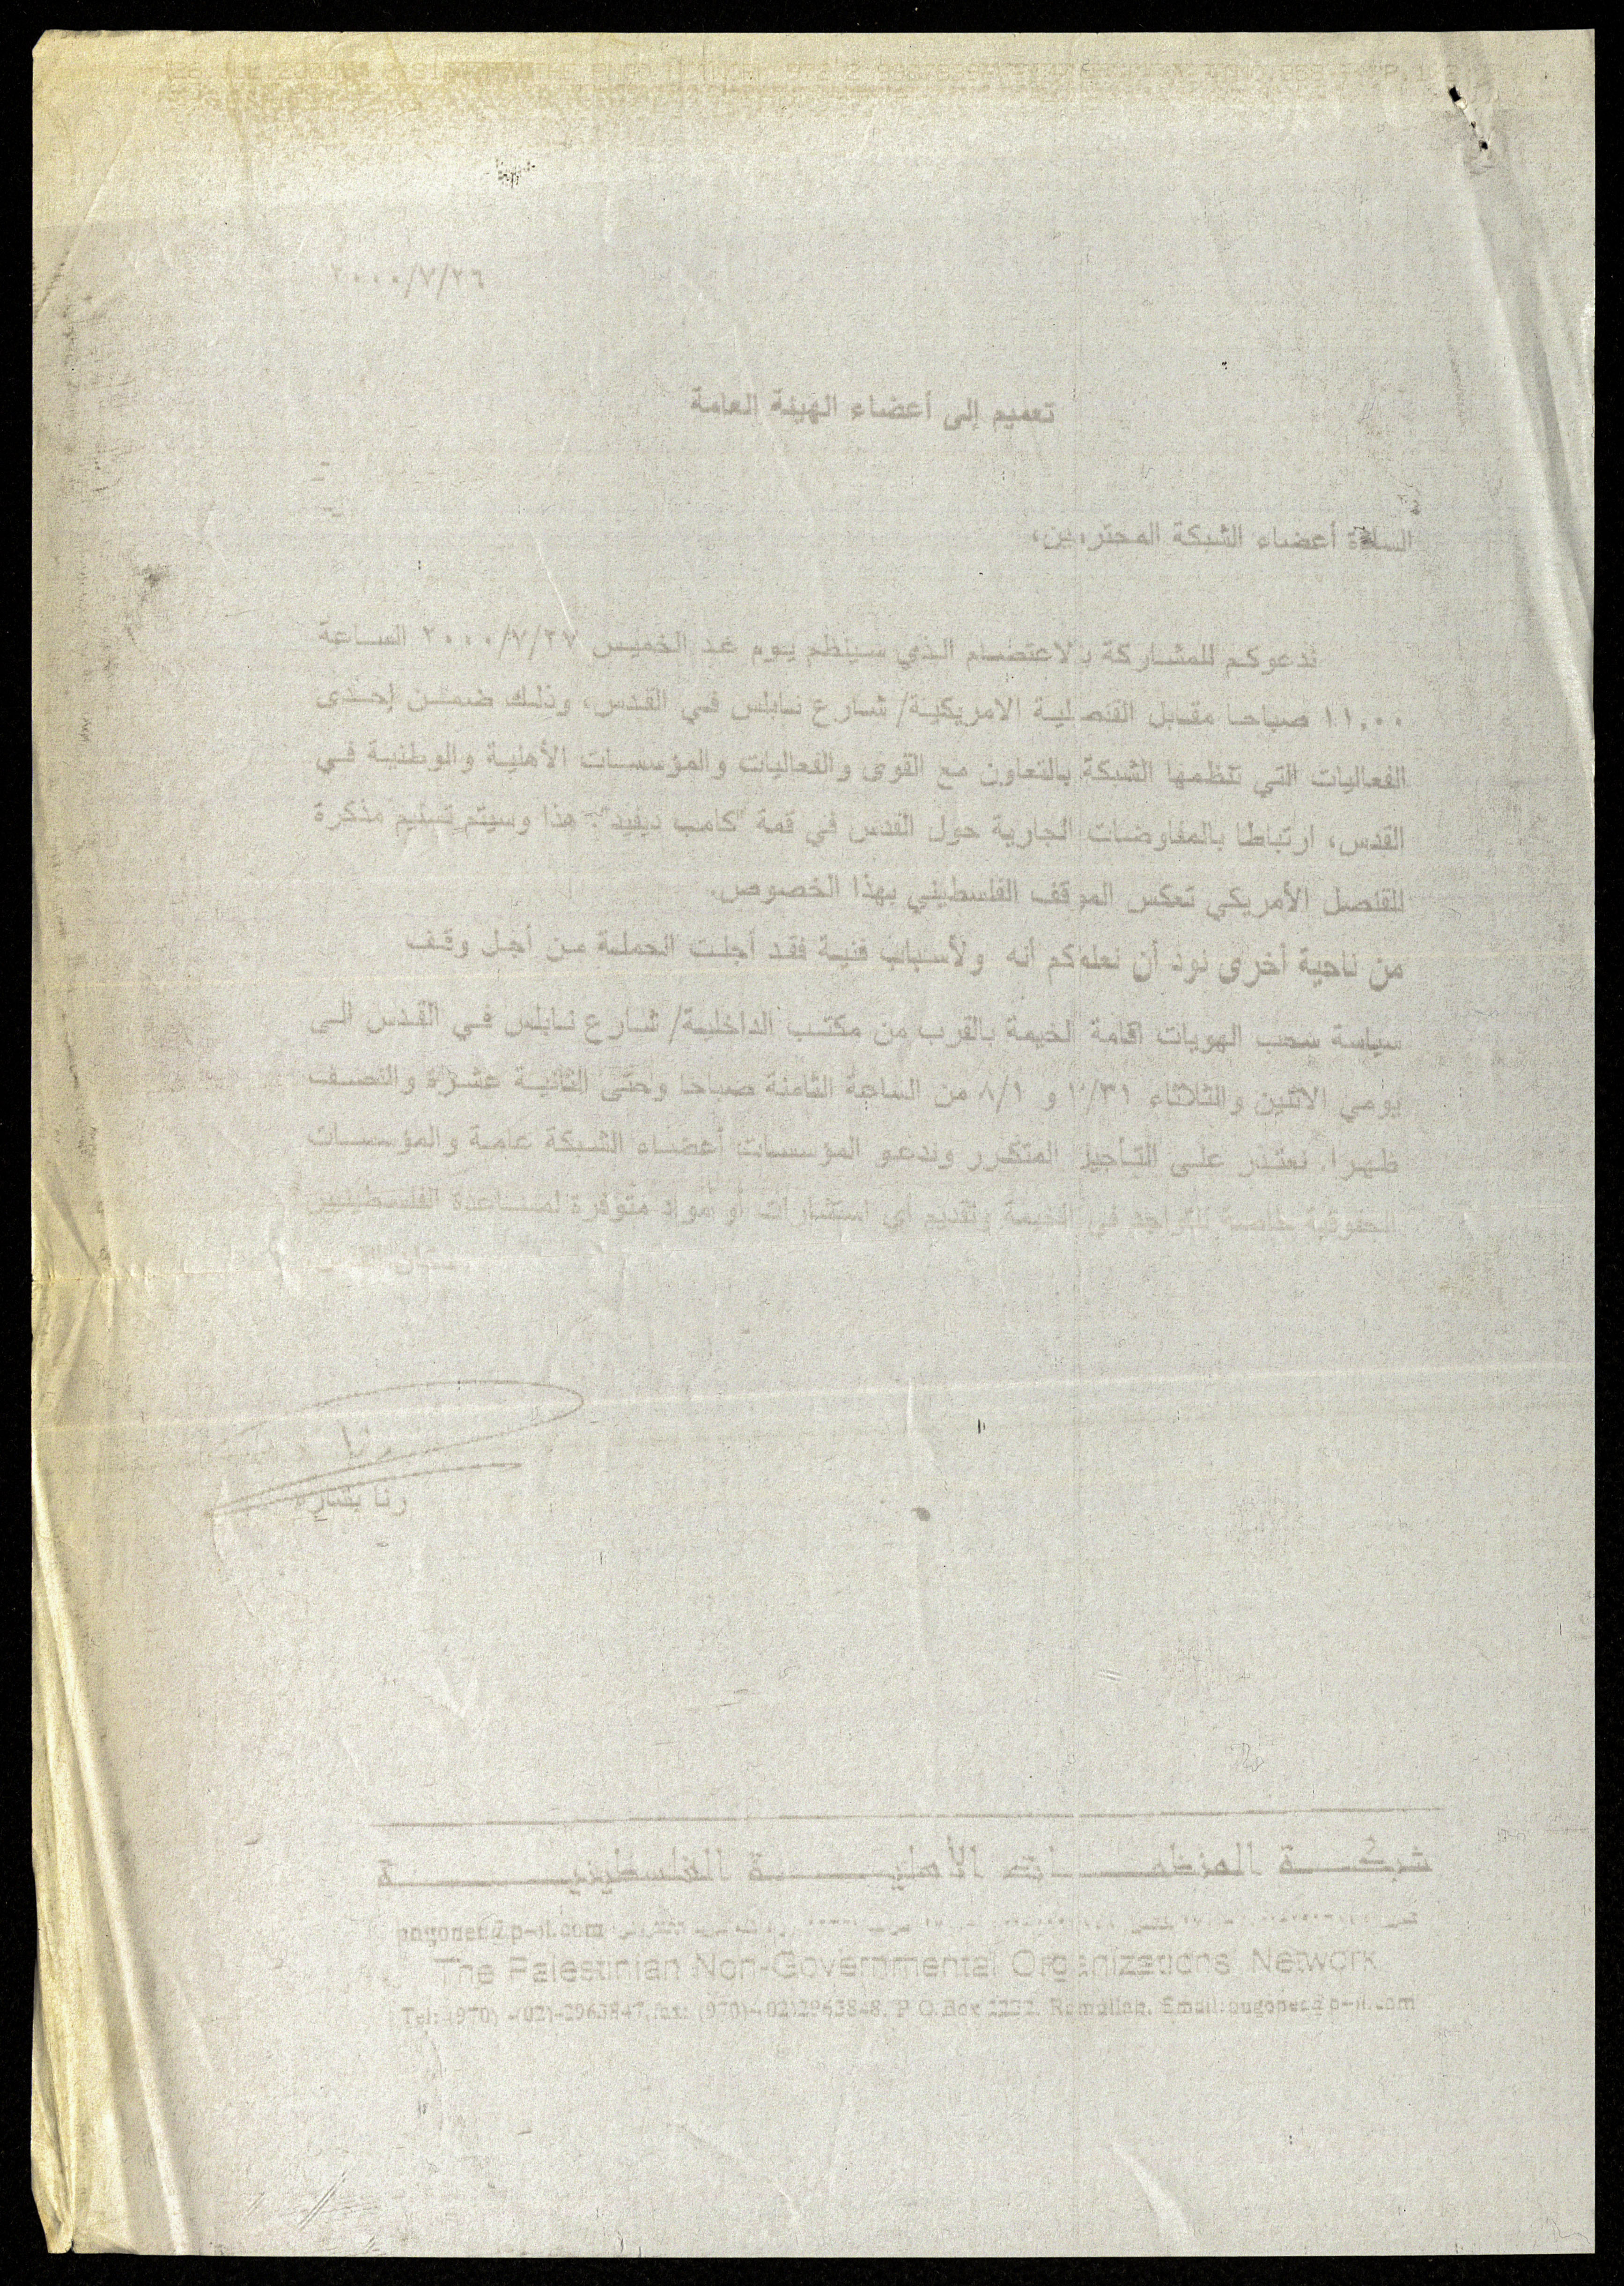 ٢٠٠٠/٧/٢٦
تعميم إلى أعضاء الهيئة العامة
السادة أعضاء الشبكة المحترمين،
ندعوكم للمشاركة بالاعتصام الذي سينظم يوم غد الخميس ٢٠٠٠/٧/٢٧ الساعة
١١,٠٠ صباحا مقابل القنصلية الامريكية/ شارع نابلس في القدس، وذلك ضمن إحدى
الفعاليات التي تنظمها الشبكة بالتعاون مع القوى والفعاليات والمؤسسات الأهلية والوطنية في
القدس، ارتباطا بالمفاوضات الجارية حول القدس في قمة "كامب ديفيد". هذا وسيتم تسليم مذكرة
للقنصل الأمريكي تعكس الموقف الفلسطيني بهذا الخصوص.
من ناحية أخرى نود أن نعلمكم أنه ولأسباب فنية فقد أجلت الحملة من أجل وقف
سياسة سحب الهويات اقامة الخيمة بالقرب من مكتب الداخلية/ شارع نابلس في القدس الى
يومي الاثنين والثلاثاء ٧/٣١ و ٨/١ من الساعة الثامنة صباحا وحتى الثانية عشرة والنصف
ظهرا. نعتذر على التأجيل المتكرر وندعو المؤسسات أعضاء الشبكة عامة والمؤسسات
الحقوقية خاصة للتواجد في الخيمة وتقديم أي استشارات أو مواد متوفرة لمساعدة الفلسطينيين
رنا بشارة
شبكة المنظمات الأهلية الفلسطينية
pngonet@p-ol.com
The Palestinian Non-Governmental Organizations Network
Tel: (970) -(02)-2963847, fax: (970)-(02)2963848, P.O.Box 2232, Ramallah, Email: pngonet@p-ol.com